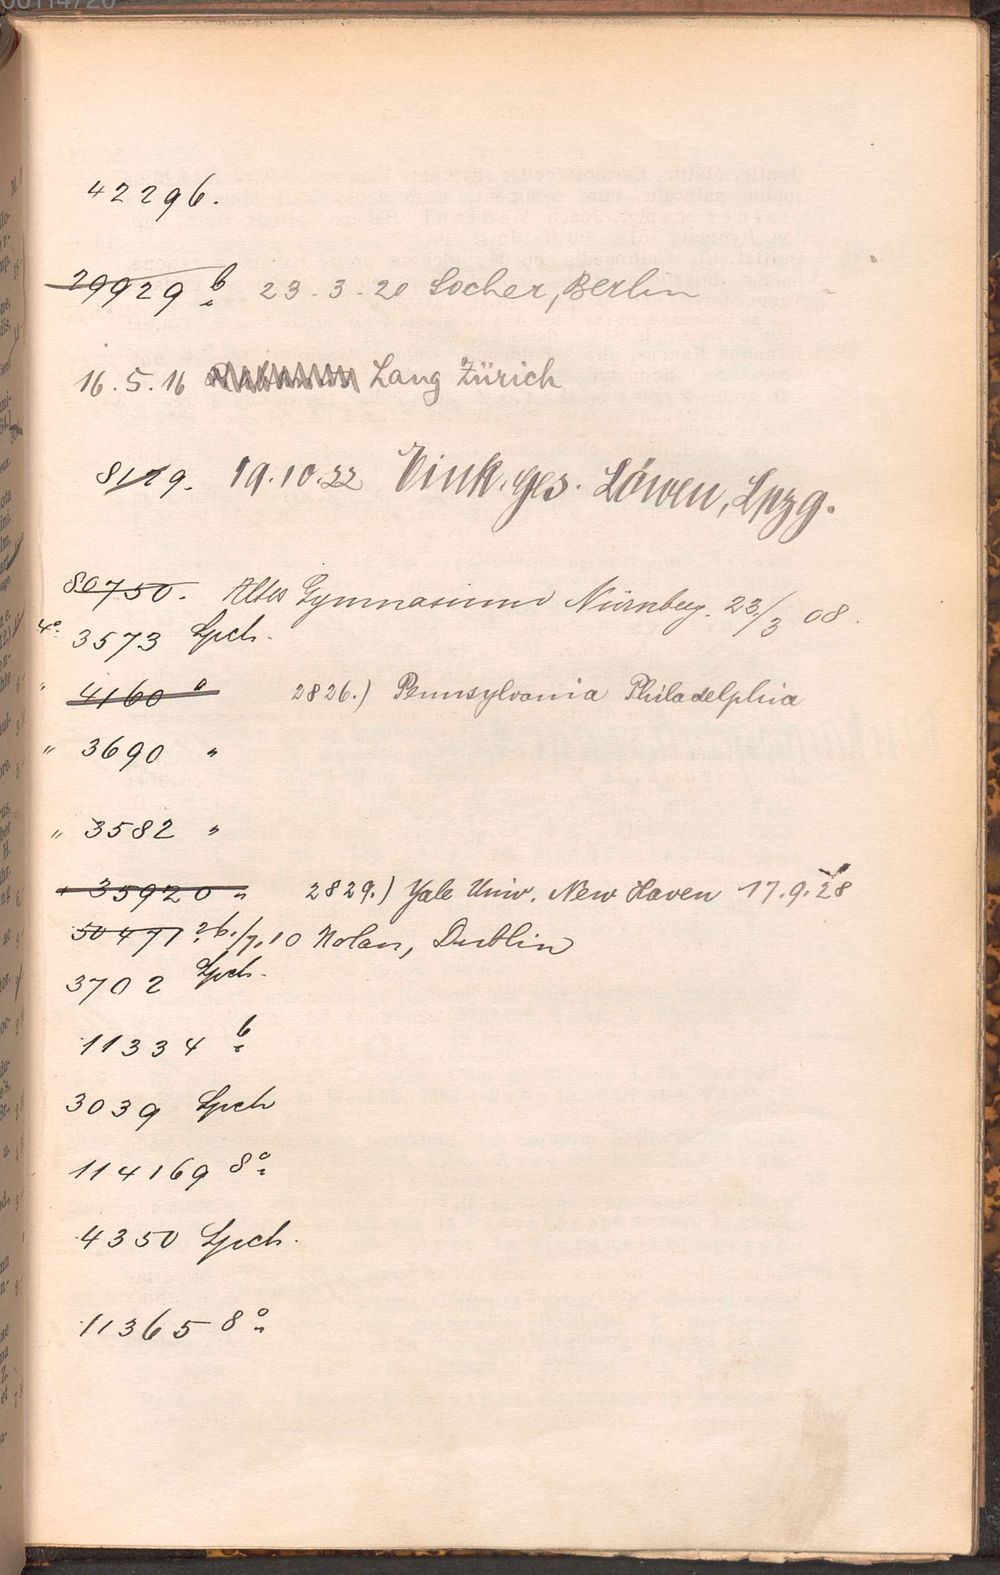 42296.
29929 b 23.3.20 Locher, Berlin
16.5.16 Lang Zürich
8129. 19.10.22 Vink. ges. Löwen, Lpzg.
80750. Altes Gymnasium Nürnberg. 23/3 08.
4° 3573 Lpch.
" 4160 " 2826.) Pennsylvania Philadelphia
" 3690 "
" 3582 "
" 35920 " 2829.) Yale Univ. New Haven 17.9.28
50471 26./7.10 Nolan, Dublin
3702 Lpch.
11334 b
3039 Lpch
114169 8°
4350 Lpch.
11365 8°